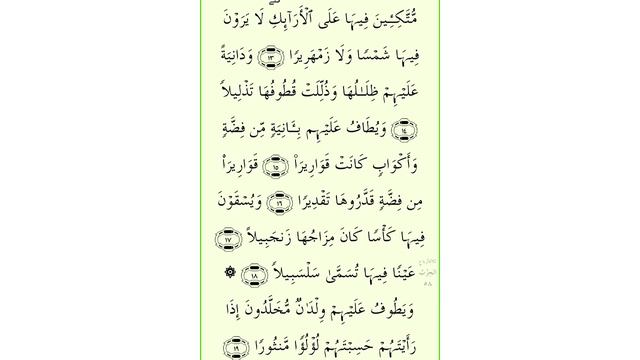 مُّتَّكِـِٔينَ فِيهَا عَلَى ٱلْأَرَآئِكِ لَا يَرَوْنَ
فِيهَا شَمْسًا وَلَا زَمْهَرِيرًا ١٣ وَدَانِيَةً
عَلَيْهِمْ ظِلَـٰلُهَا وَذُلِّلَتْ قُطُوفُهَا تَذْلِيلًا
١٤ وَيُطَافُ عَلَيْهِم بِـَٔانِيَةٍ مِّن فِضَّةٍ
وَأَكْوَابٍ كَانَتْ قَوَارِيرَا۠ ١٥ قَوَارِيرَا۟
مِن فِضَّةٍ قَدَّرُوهَا تَقْدِيرًا ١٦ وَيُسْقَوْنَ
فِيهَا كَأْسًا كَانَ مِزَاجُهَا زَنجَبِيلًا ١٧
عَيْنًا فِيهَا تُسَمَّىٰ سَلْسَبِيلًا ١٨ ۞
وَيَطُوفُ عَلَيْهِمْ وِلْدَٰنٌ مُّخَلَّدُونَ إِذَا
رَأَيْتَهُمْ حَسِبْتَهُمْ لُؤْلُؤًا مَّنثُورًا ١٩